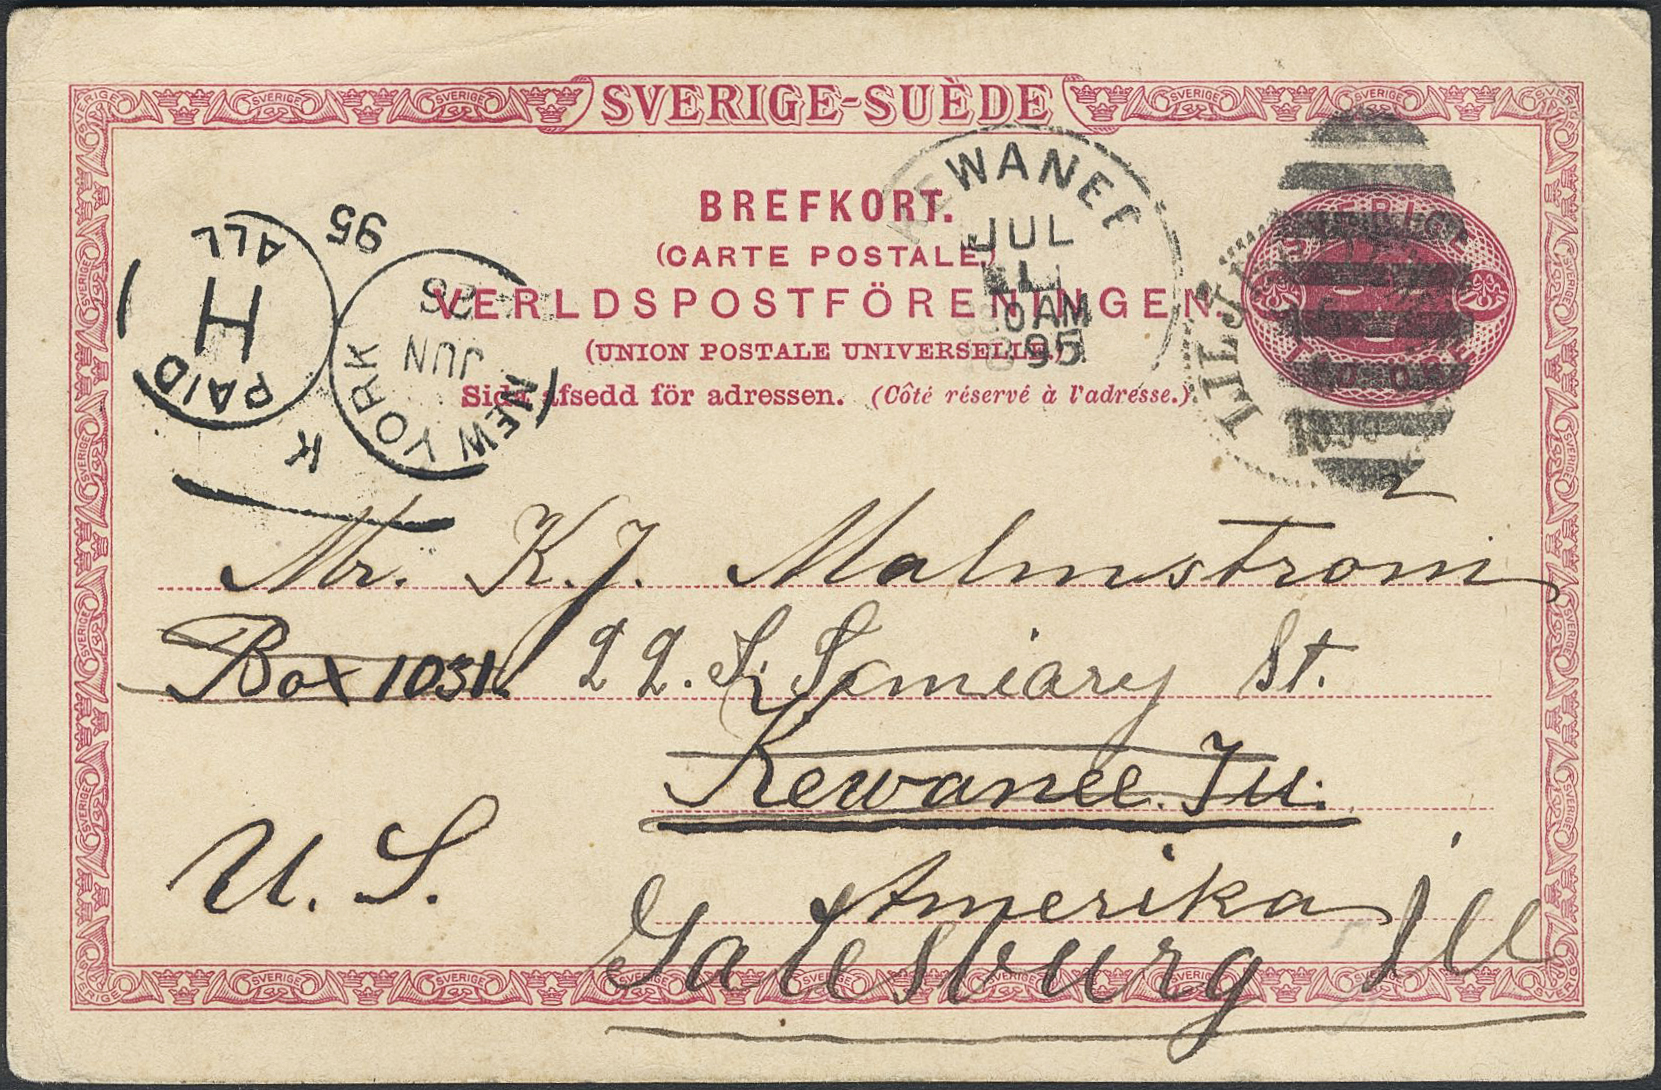 SVERIGE-SUÈDE
BREFKORT.
(CARTE POSTALE)
VERLDSPOSTFÖRENINGEN.
(UNION POSTALE UNIVERSELLE)
Sidan afsedd för adressen. (Côté réservé à l'adresse.)
KEWANEE
JUL
30 AM
95
NEW YORK
JUN
26
95
PAID
H
ALL
K
LILJ
SVERIGE
TIO ÖRE
Mr. K. J. Malmstrom
Box 1031. 22. St.
Kewanee. Ill.
U. S. Amerika
Galesburg Ill